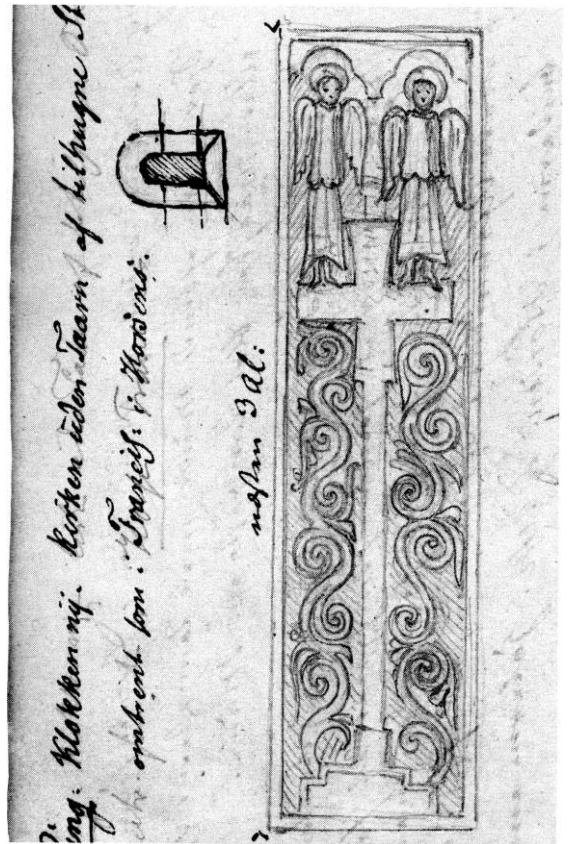 Klokken nÿ. Kirken uden Taarn af tilhugne St
omtrent som. Francisc: i Horsens.
næsten 3 Al: